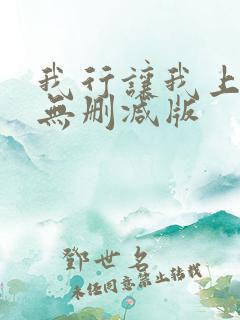 我行讓我上
無刪减版
鄧世名
未任同意禁止转载